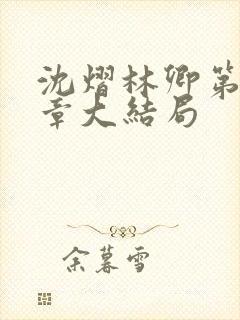 沈熠林卿第
章大結局
余暮雪